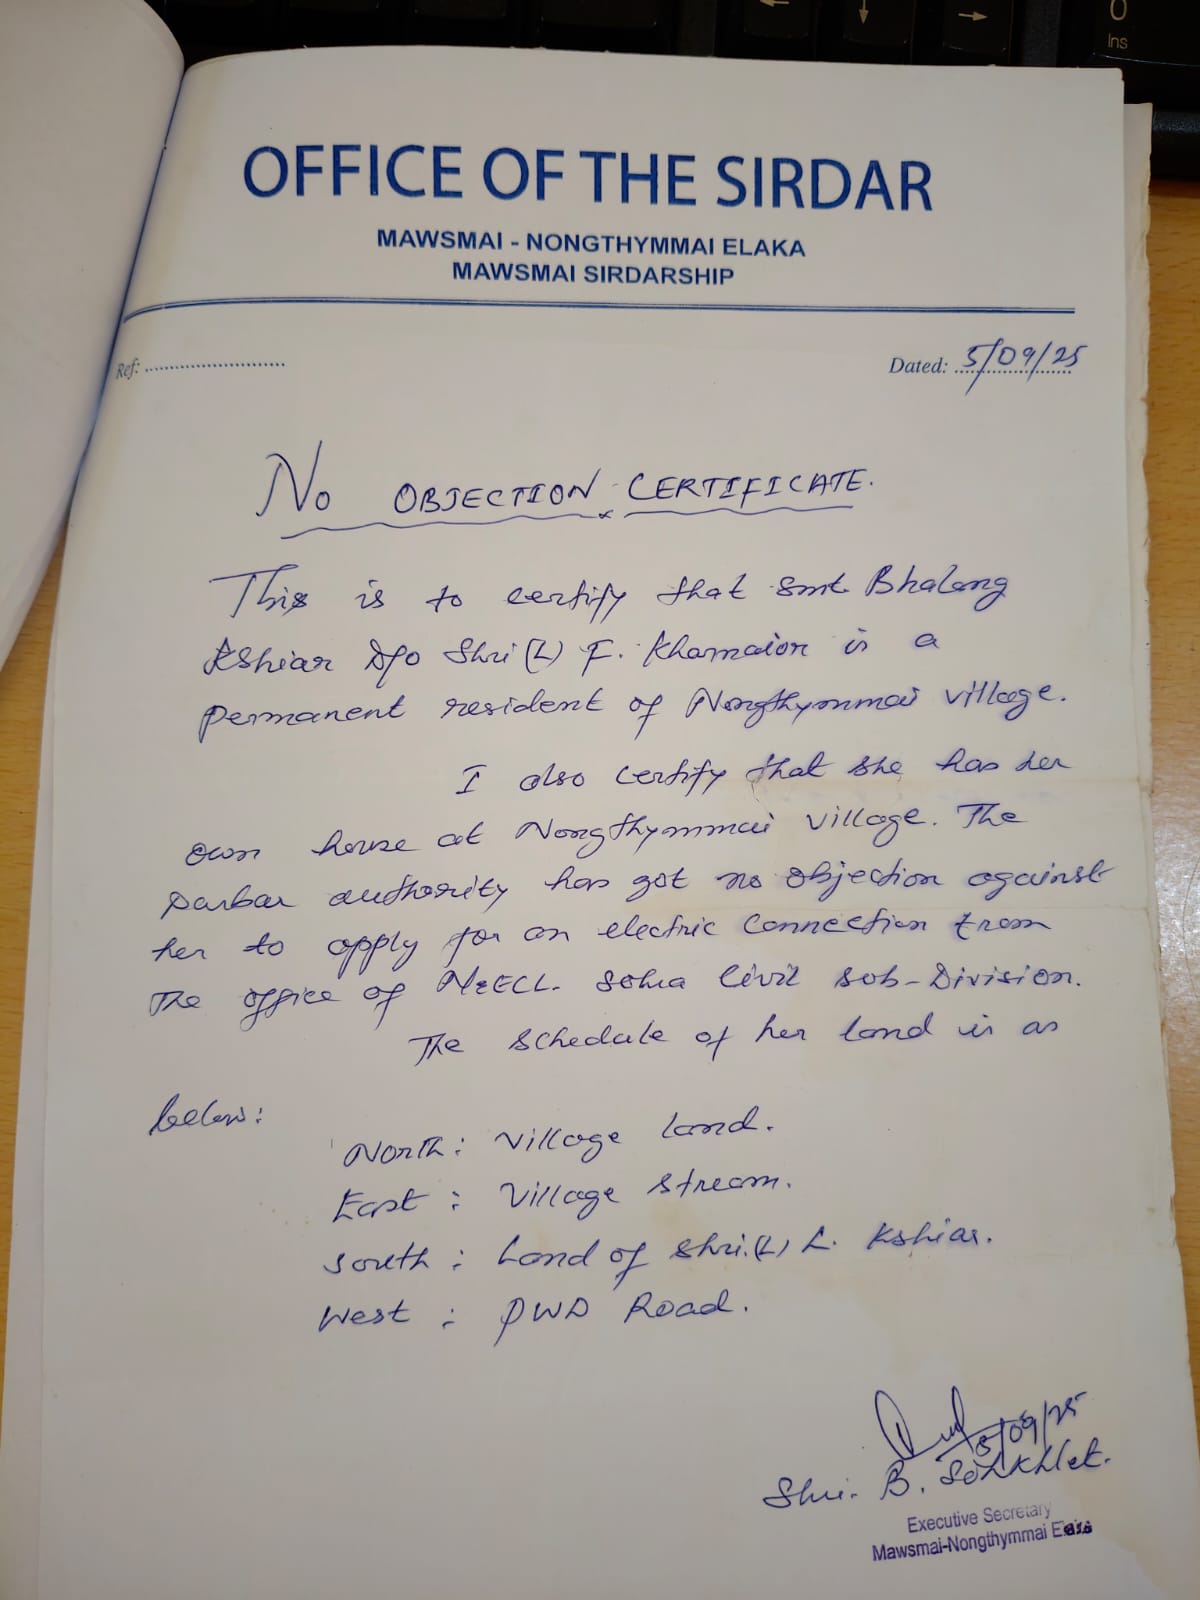 OFFICE OF THE SIRDAR
MAWSMAI - NONGTHYMMAI ELAKA
MAWSMAI SIRDARSHIP
Ref: ..........................
Dated: 5/09/25
No OBJECTION CERTIFICATE.
This is to certify that Smt. Bhalang
Kshiar D/o Shri (L) F. Khamaion is a
permanent resident of Nongthymmai village.
I also certify that she has her
own house at Nongthymmai village. The
Darbar authority has got no objection against
her to apply for an electric connection from
the office of MeECL. Sohra Civil sub-Division.
The schedule of her land is as
below:
North: Village land.
East : Village stream.
South : Land of Shri.(L) L. Kshiar.
West : PWD Road.
5/09/25
Shri. B. Sohkhlet.
Executive Secretary
Mawsmai-Nongthymmai Elaka
0
Ins
← ↓ →